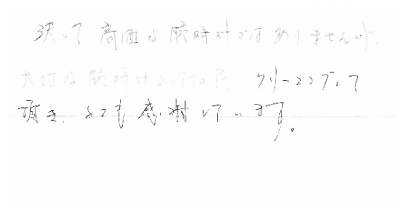 決して高価な腕時計ではありませんが、
大切な腕時計なので、クリーニングして
頂き、とても感謝しています。